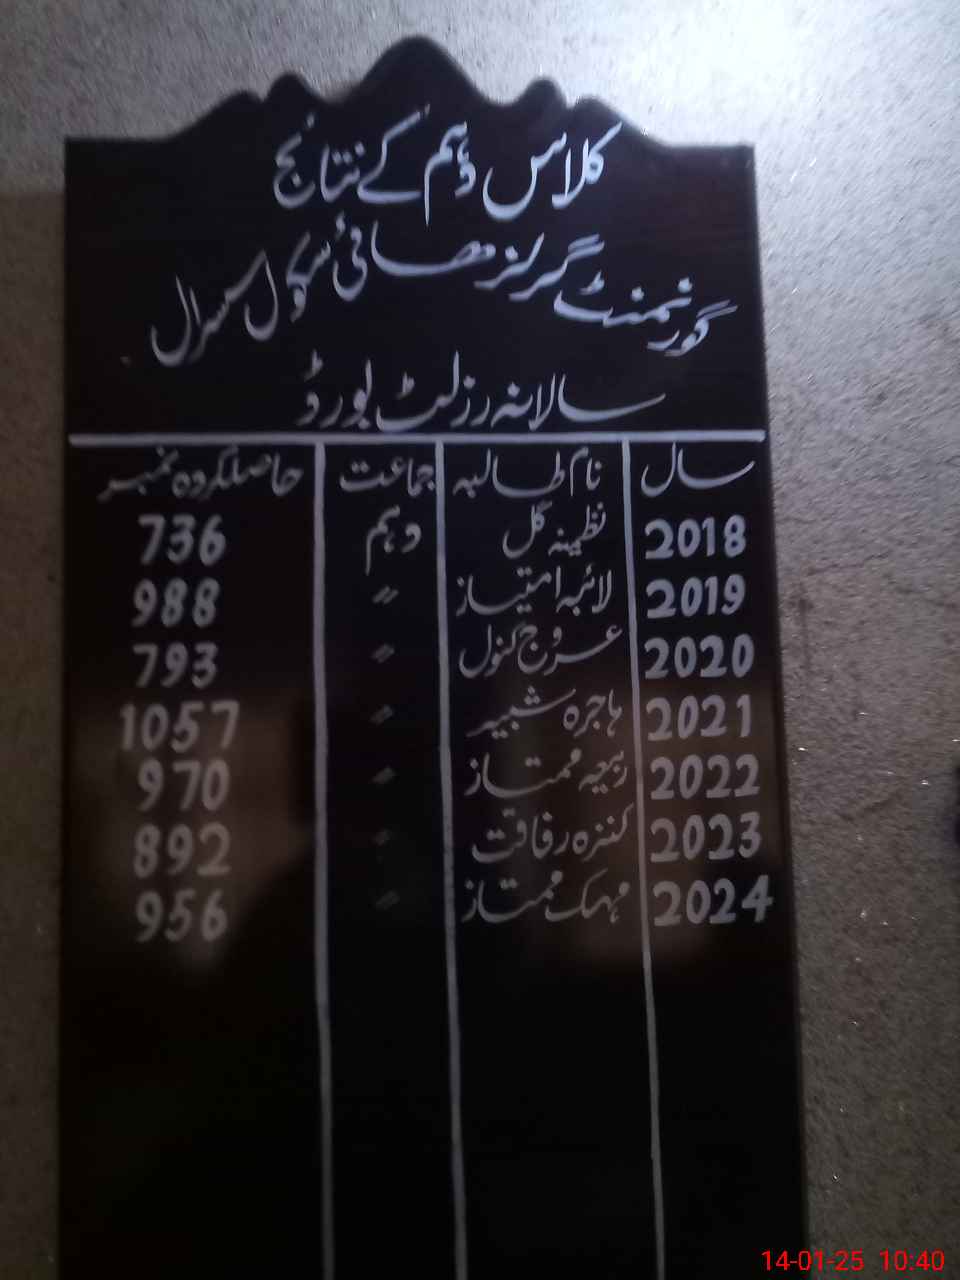 کلاس دہم کے نتائج
گورنمنٹ گرلز ھائی سکول سرال
سالانہ رزلٹ بورڈ
سال نام طالبہ جماعت حاصلکردہ نمبر
2018 نظیمہ گل دہم 736
2019 لائبہ امتیاز 〃 988
2020 عروج کنول 〃 793
2021 ہاجرہ شبیر 〃 1057
2022 ربیعہ ممتاز 〃 970
2023 کنزہ رفاقت 〃 892
2024 مہک ممتاز 〃 956
14-01-25 10:40